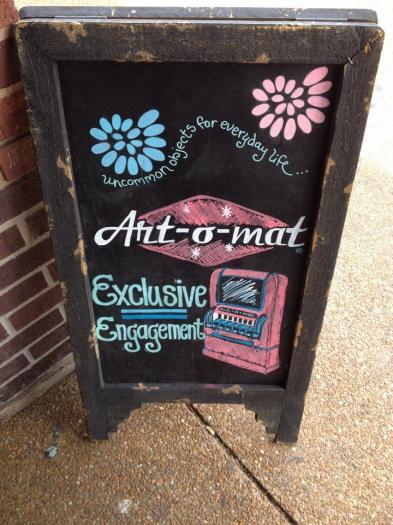 uncommon objects for everyday life...
Art-o-mat®
Exclusive
Engagement